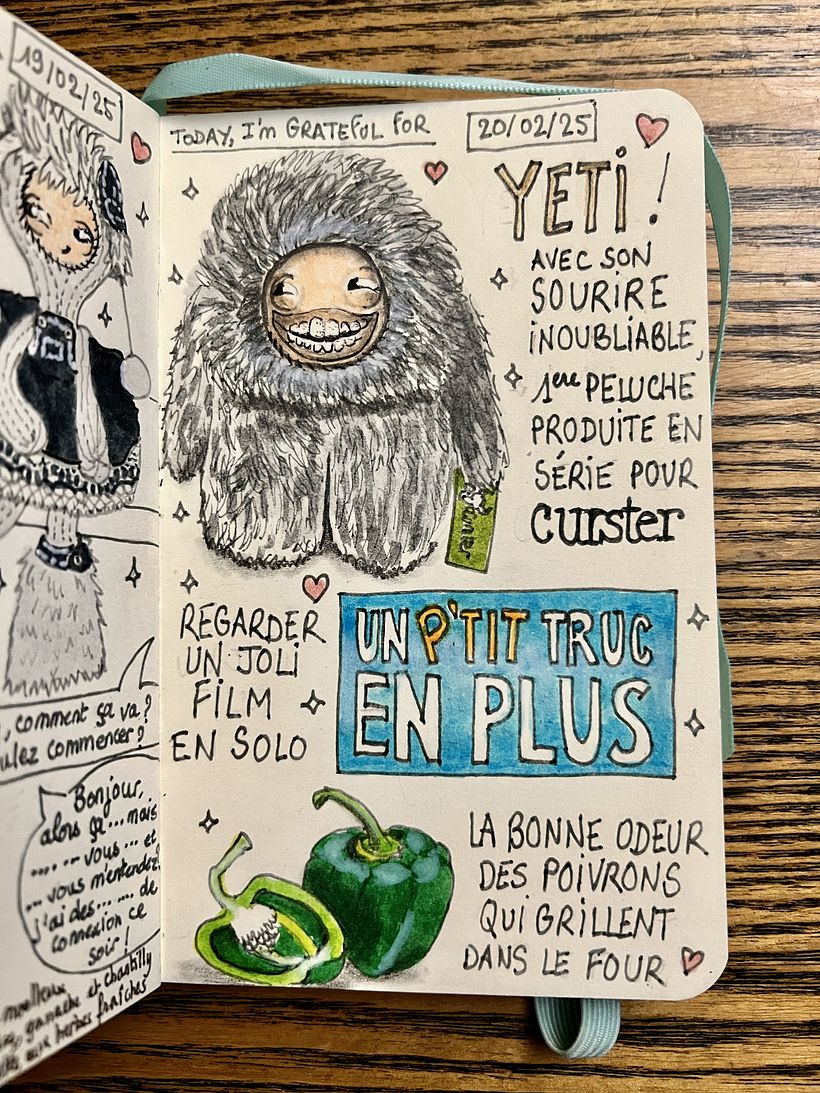 19/02/25
, comment ça va?
ulez commencer?
Bonjour,
alors ça... mais
vous ... et
... vous m'entendez?
j'ai des ... de
connexion ce
soir!
moelleux
ganache et chantilly
aux herbes fraîches
TODAY, I'm GRATEFUL FOR
20/02/25
YETI !
AVEC SON
SOURIRE
INOUBLIABLE,
1ère PELUCHE
PRODUITE EN
SÉRIE POUR
curster
REGARDER
UN JOLI
FILM
EN SOLO
UN P'TIT TRUC
EN PLUS
LA BONNE ODEUR
DES POIVRONS
QUI GRILLENT
DANS LE FOUR